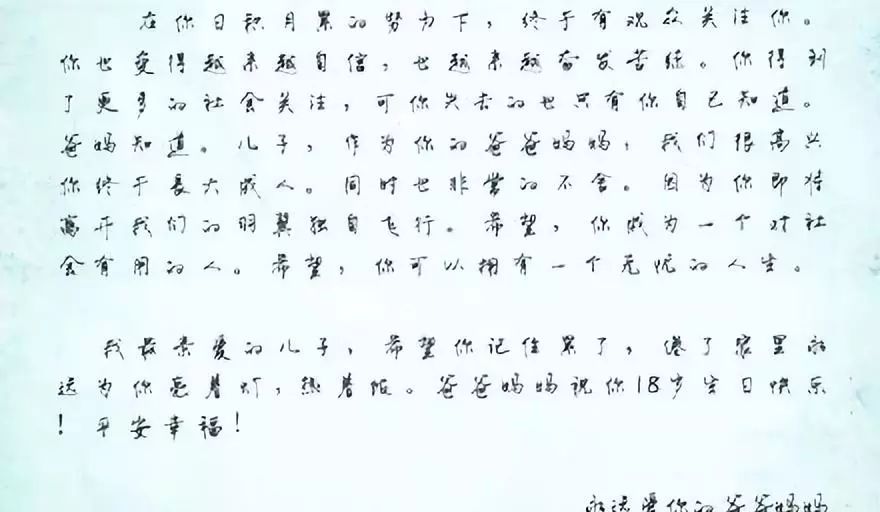 在你日积月累的努力下，终于有观众关注你。
你也变得越来越自信，也越来越奋发苦练。你得到
了更多的社会关注，可你失去的也只有你自己知道。
爸妈知道。儿子，作为你的爸爸妈妈，我们很高兴
你终于长大成人。同时也非常的不舍。因为你即将
离开我们的羽翼独自飞行。希望，你成为一个对社
会有用的人。希望，你可以拥有一个无忧的人生。
我最亲爱的儿子，希望你记住累了，倦了家里永
远为你亮着灯，热着饭。爸爸妈妈祝你18岁生日快乐
！平安幸福！
永远爱你的爸爸妈妈